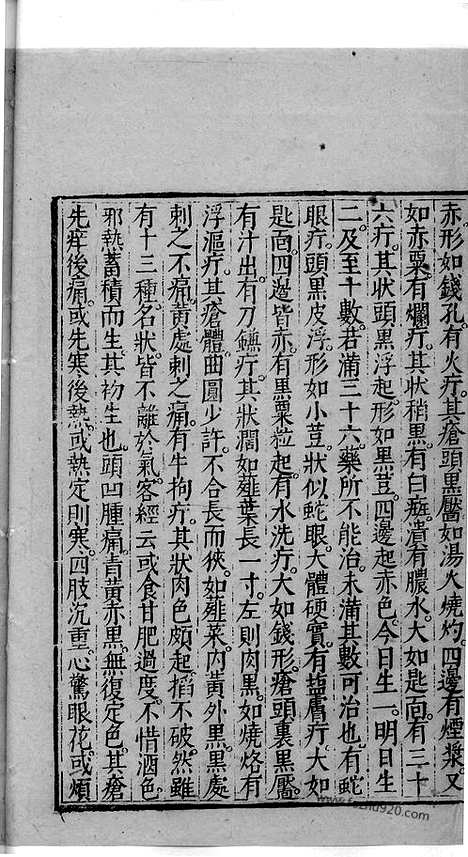 赤形如錢孔有火疔其瘡頭黑靨如湯火燒灼四邊有煙漿又
如赤粟有爛疔其狀稍黑有白瘢潰有膿水大如匙面有三十
六疔其狀頭黑浮起形如黑荳四邊起赤色今日生一明日生
二及至十數若滿三十六藥所不能治未滿其數可治也有蛇
眼疔頭黑皮浮形如小荳狀似蛇眼大體硬實有鹽膚疔大如
匙面四邊皆赤有黑粟粒起有水洗疔大如錢形瘡頭裏黑靨
有汁出有刀鐮疔其狀濶如薤葉長一寸左則肉黑如燒烙有
浮漚疔其瘡體曲圓少許不合長而狹如薤菜內黃外黑黑處
刺之不痛黃處刺之痛有牛拘疔其狀肉色頗起掐不破然雖
有十三種名狀皆不離於氣客經云或食甘肥過度不惜酒色
邪熱蓄積而生其初生也頭凹腫痛青黃赤黑無復定色其瘡
先痒後痛或先寒後熱或熱定則寒四肢沉重心驚眼花或煩